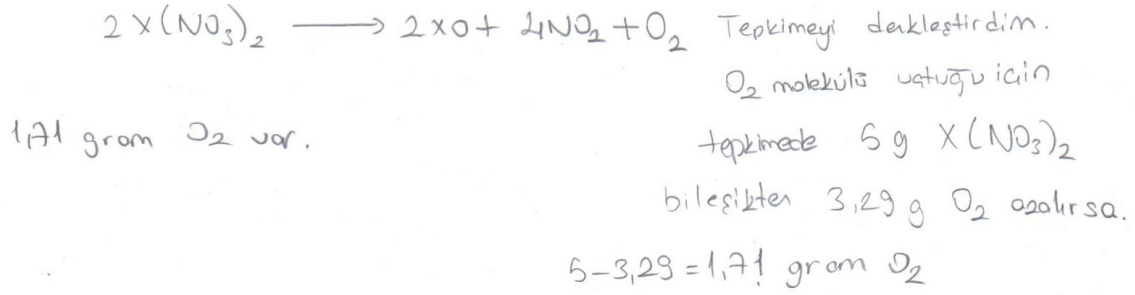 2 X(NO₃)₂ ⟶ 2XO + 4NO₂ + O₂ Tepkimeyi denkleştirdim.
O₂ molekülü uçtuğu için
1,71 gram O₂ var. tepkimede 5 g X(NO₃)₂
bileşikten 3,29 g O₂ azalırsa.
5-3,29 = 1,71 gram O₂